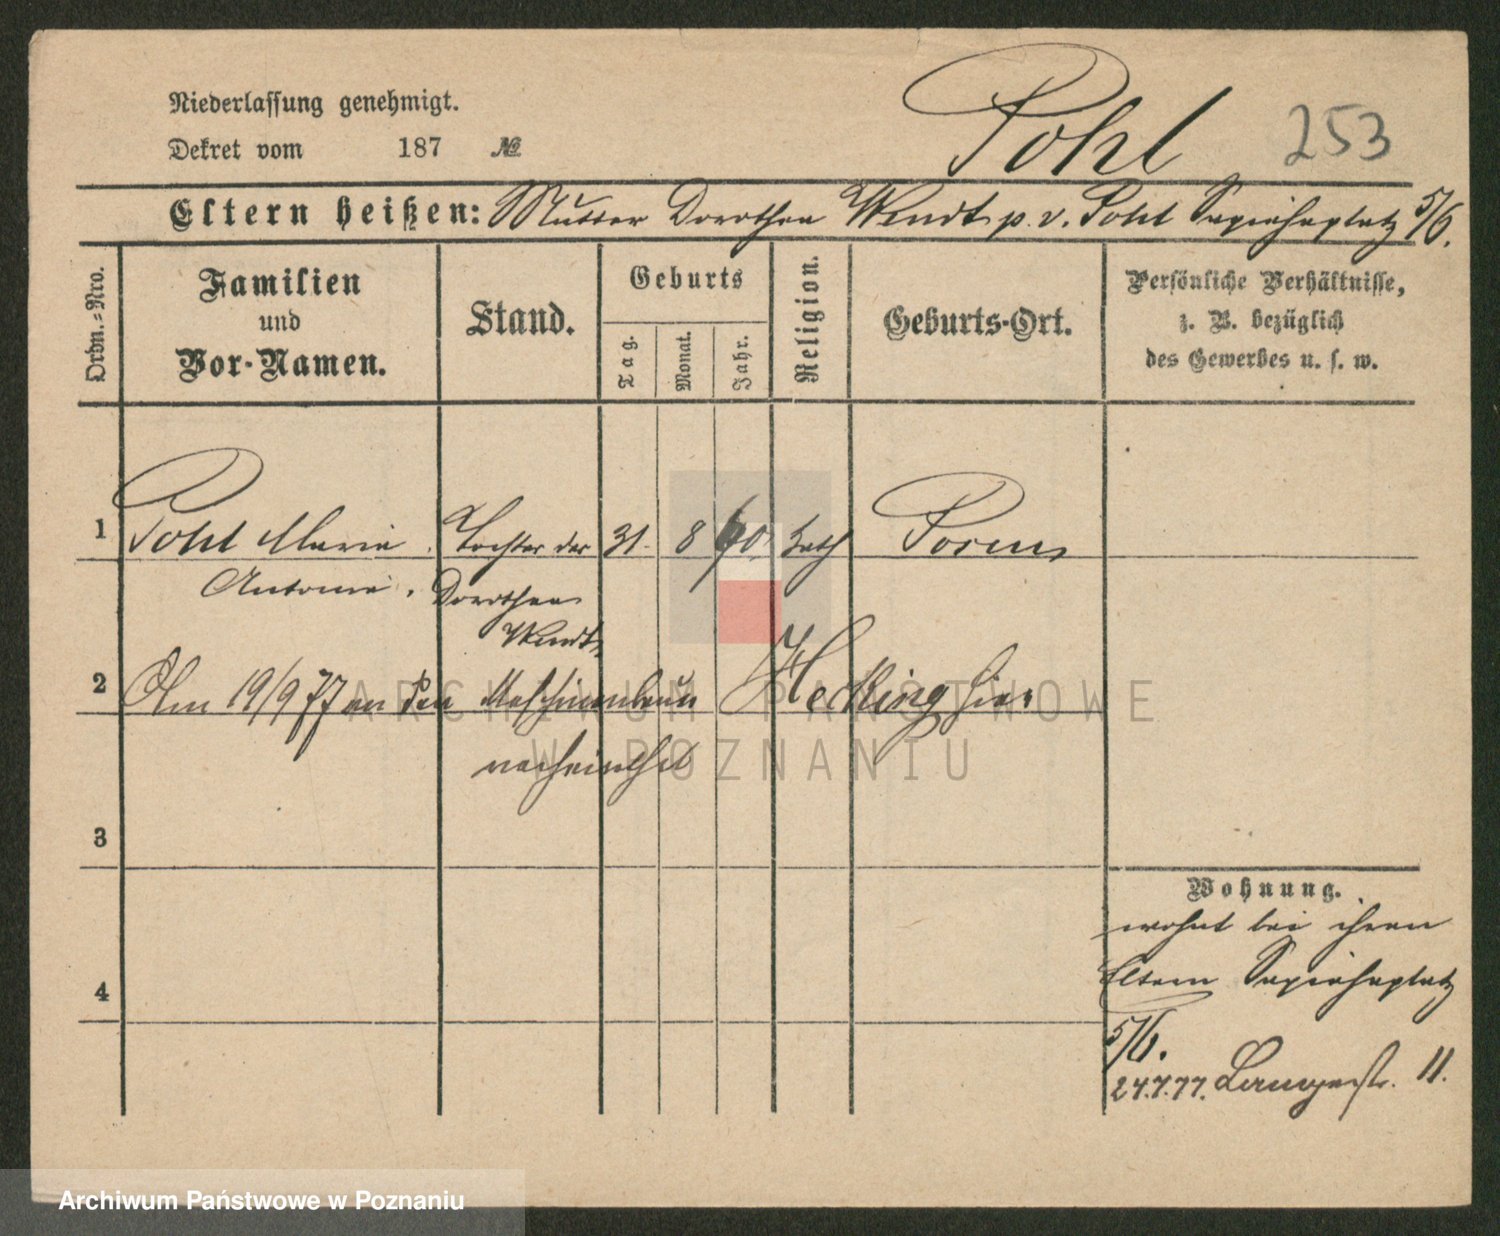 Niederlassung genehmigt.
Dekret vom 187 №
Pohl 253
Eltern heißen: Mutter Dorothea Wendt p. v. Pohl Sapiehaplatz 5/6.
Ordn.-Nro.
Familien und Vor-Namen.
Stand.
Geburts
Tag. Monat. Jahr.
Religion.
Geburts-Ort.
Persönliche Verhältnisse,
z. B. bezüglich
des Gewerbes u. s. w.
1 Pohl Maria Tochter der 31. 8 kath Posen
Antonie. Dorothea
Wendt
2 Am 19/9 77 an den Maschinenbauer Hecking hier
verheirathet
3
4
Wohnung.
wohnt bei ihren
Eltern Sapiehaplatz
5/6.
24.7.77. Langestr. 11.
ARCHIWUM PAŃSTWOWE
W POZNANIU
Archiwum Państwowe w Poznaniu